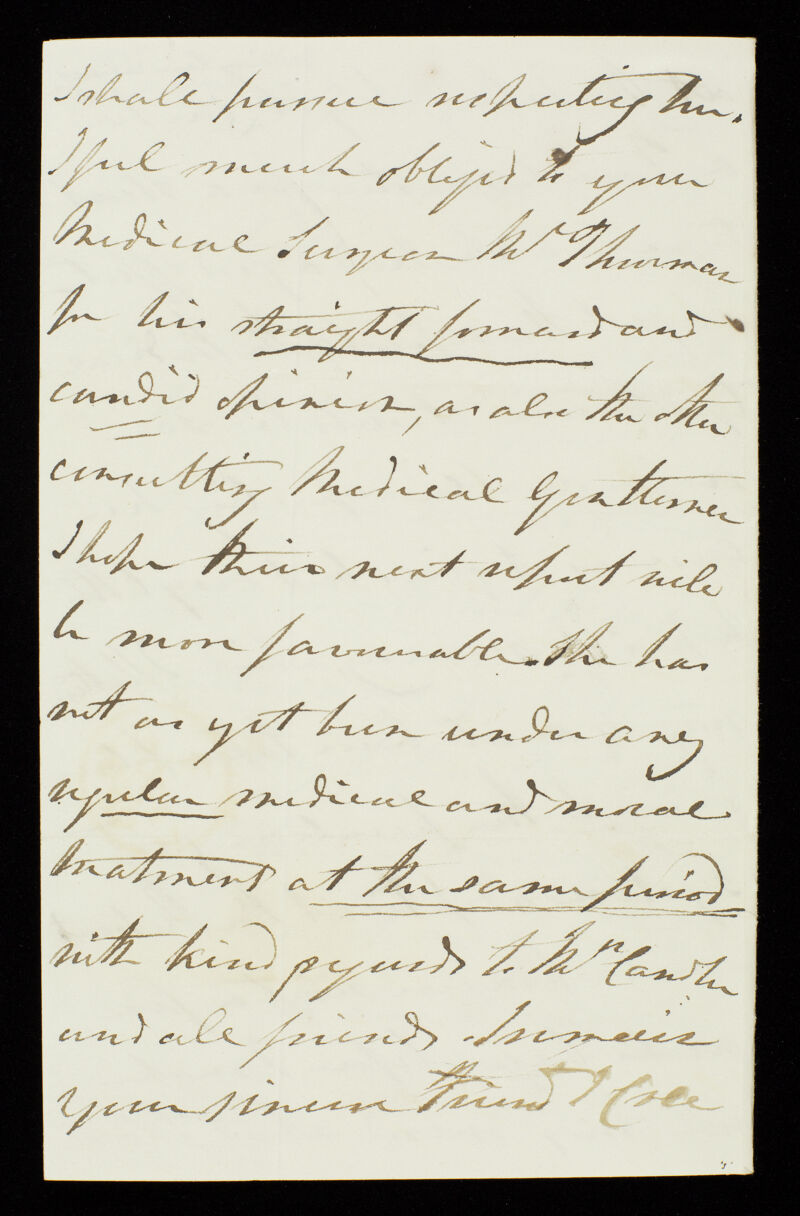 I shall pursue respecting her.
I feel much obliged to your
Medical Surgeon Mr Thurnam
for his straight forward and
candid opinion, as also the other
consulting Medical Gentlemen
I hope their next report will
be more favourable. She has
not as yet been under any
regular medical and moral
treatment at the same period
with kind regards to Mrs Candler
and all friends. I remain
your sincere friend J Cole